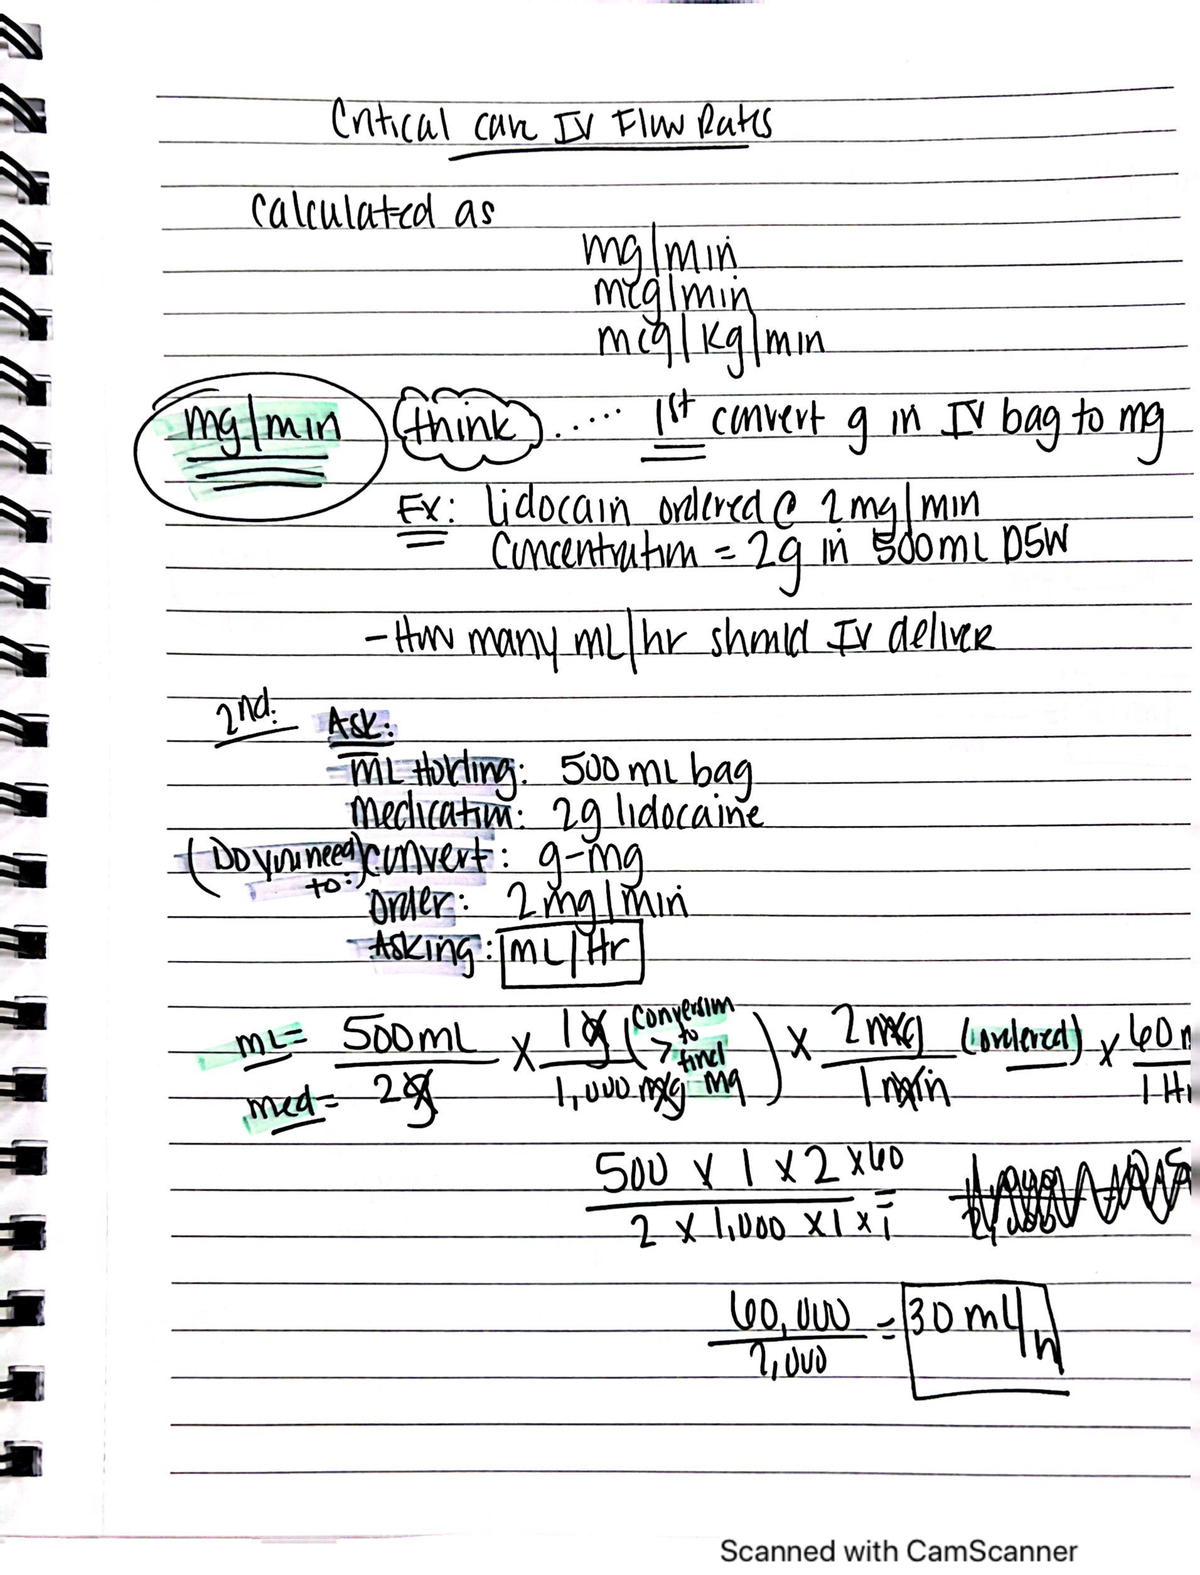 Critical care IV Flow Rates
Calculated as
mg/min
mcg/min
mcg/kg/min
mg/min think .... 1st convert g in IV bag to mg
Ex: lidocain ordered @ 2mg/min
Concentration = 2g in 500mL D5W
- How many mL/hr should IV deliver
2nd: Ask:
mL Holding: 500 mL bag
Medication: 2g lidocaine
(Do you need to:) convert: g-mg
Order: 2mg/min
Asking: mL/Hr
mL= 500mL x 1g (conversion to find mg) x 2mg (ordered) x 60
med= 2g 1,000mg 1min 1 Hr
500 x 1 x 2 x 60 =
2 x 1,000 x 1 x 1
60,000 = 30 mL/h
2,000
Scanned with CamScanner